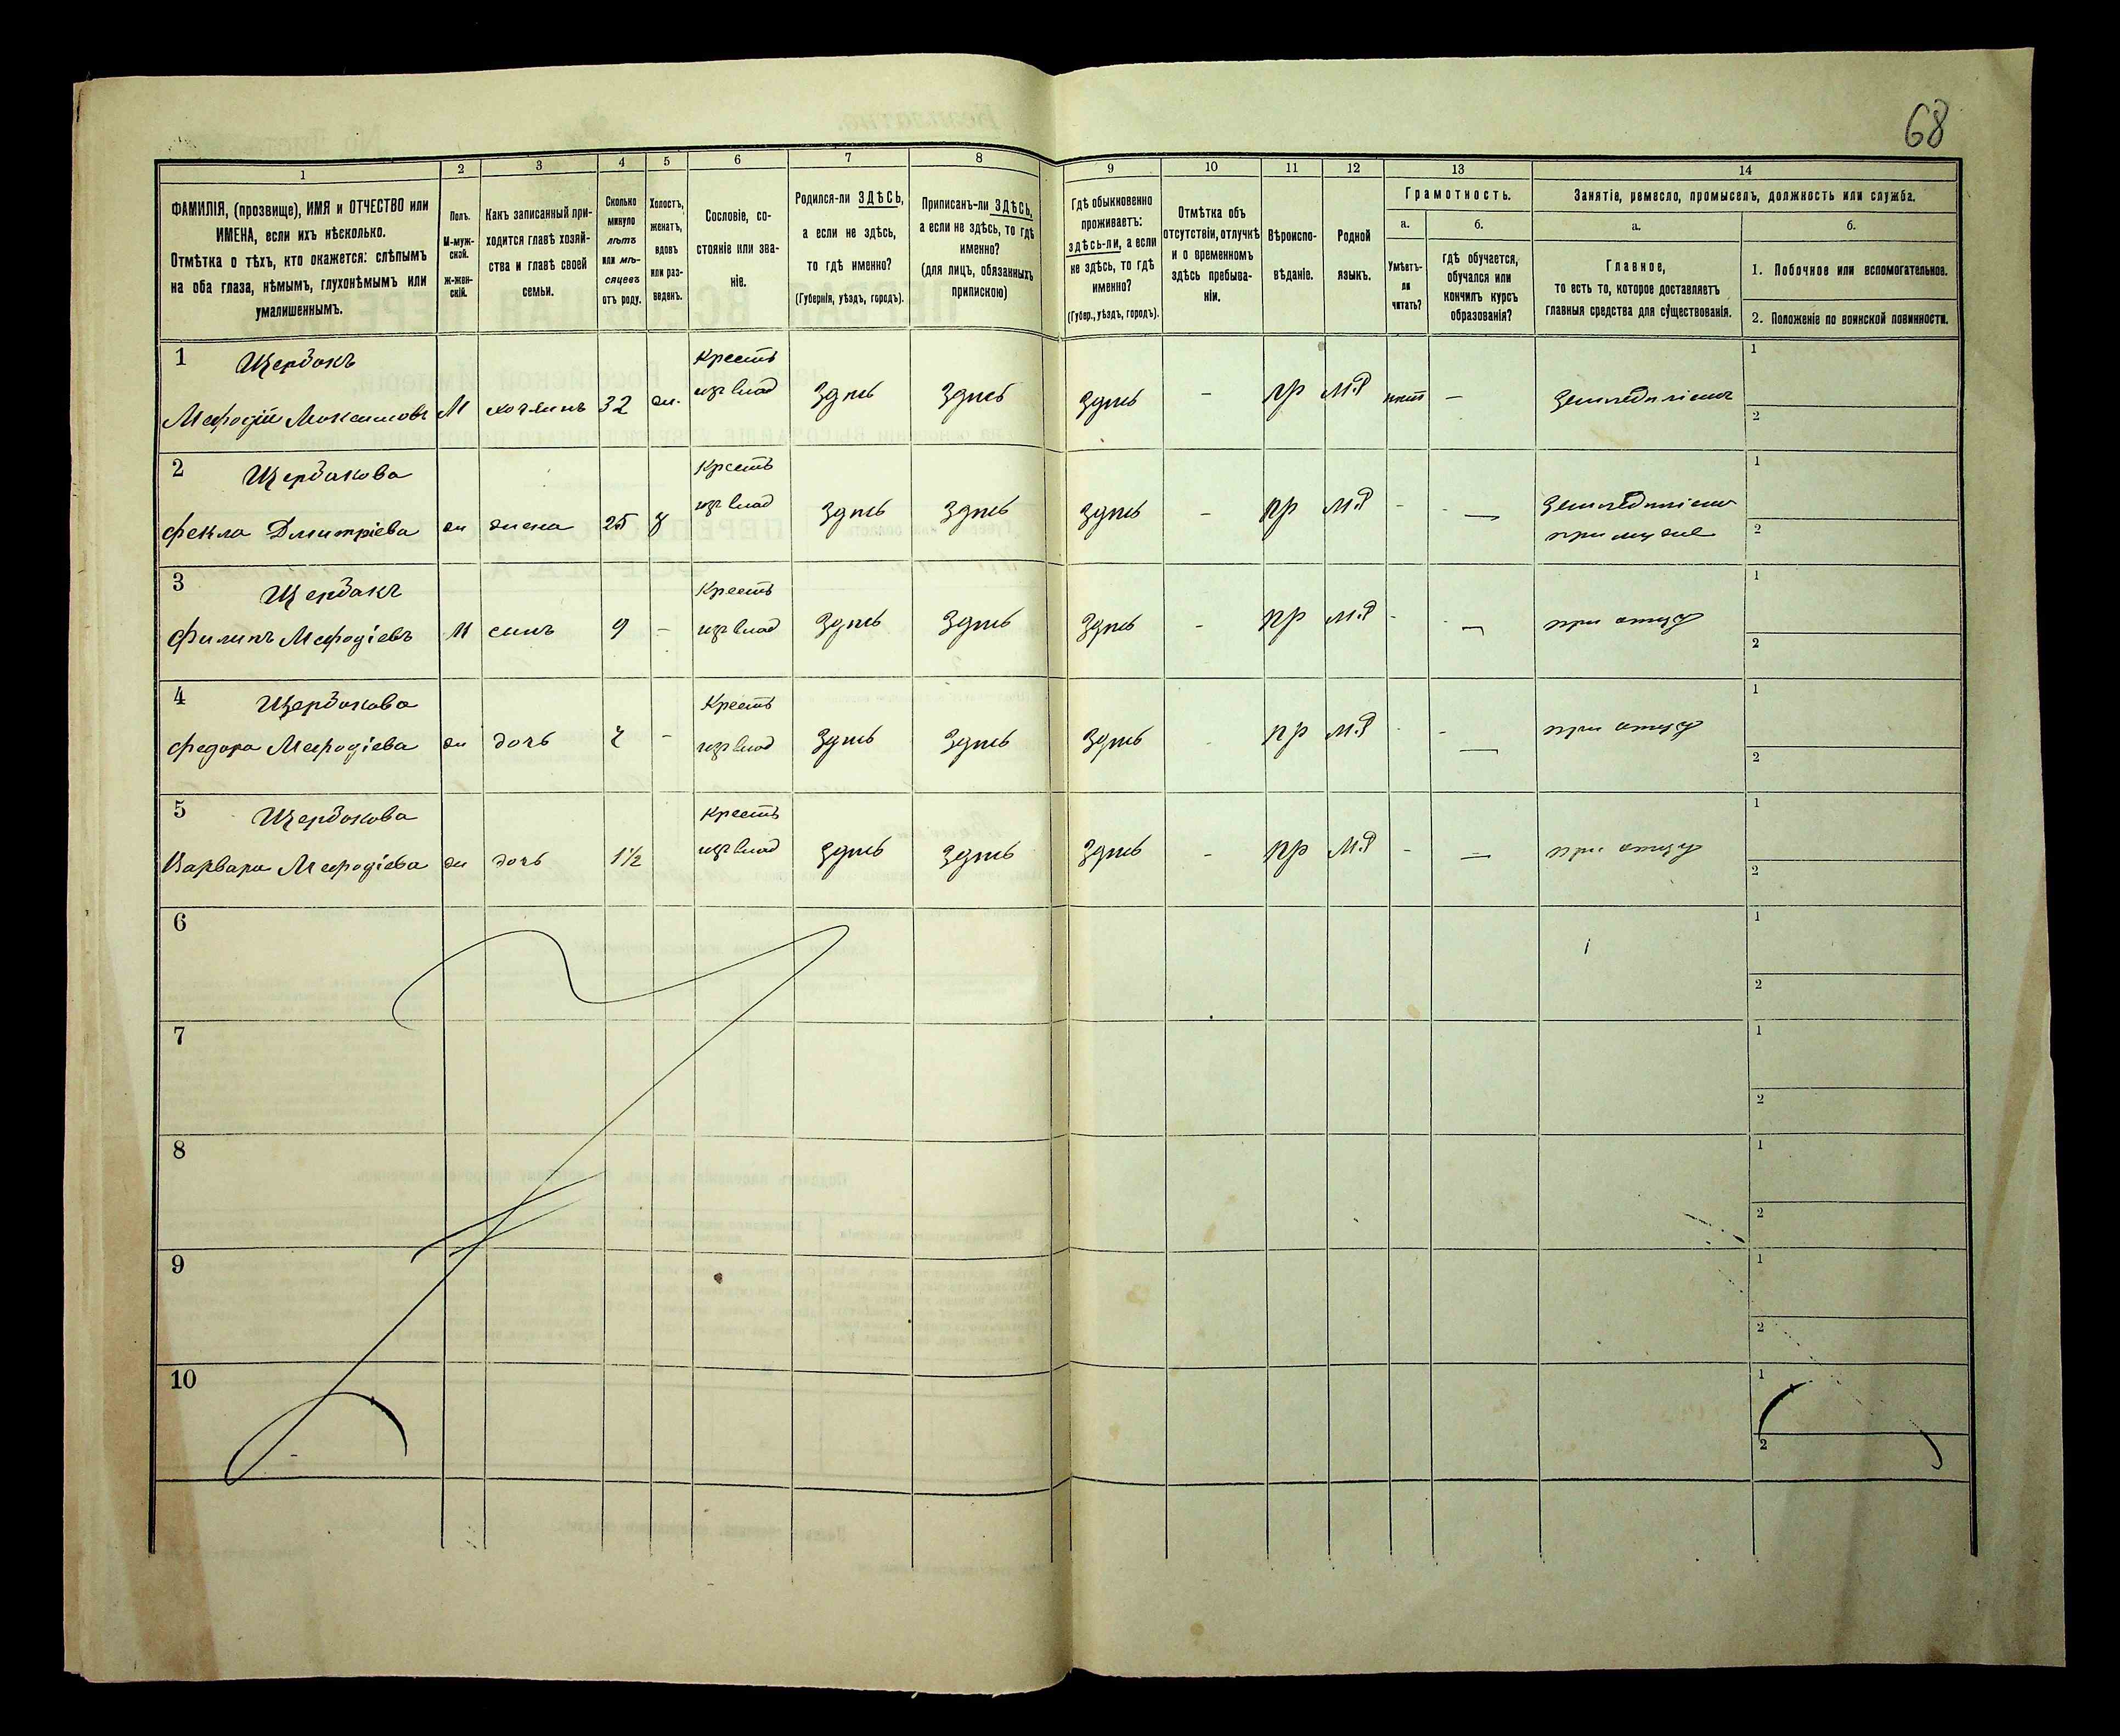 68
1 2 3 4 5 6 7 8 9 10 11 12 13 14
ФАМИЛІЯ, (прозвище), ИМЯ и ОТЧЕСТВО или
ИМЕНА, если ихъ нѣсколько.
Отмѣтка о тѣхъ, кто окажется: слѣпымъ
на оба глаза, нѣмымъ, глухонѣмымъ или
умалишеннымъ.
Полъ.
М-муж-
ской.
Ж-жен-
скій.
Какъ записанный при-
ходится главѣ хозяй-
ства и главѣ своей
семьи.
Сколько
минуло
лѣтъ
или мѣ-
сяцевъ
отъ роду.
Холостъ,
женатъ,
вдовъ
или раз-
веденъ.
Сословіе, со-
стояніе или зва-
ніе.
Родился-ли ЗДѢСЬ,
а если не здѣсь,
то гдѣ именно?
(Губернія, уѣздъ, городъ).
Приписанъ-ли ЗДѢСЬ,
а если не здѣсь, то гдѣ
именно?
(для лицъ, обязанныхъ
припискою)
Гдѣ обыкновенно
проживаетъ:
здѣсь-ли, а если
не здѣсь, то гдѣ
именно?
(Губер., уѣздъ, городъ).
Отмѣтка объ
отсутствіи, отлучкѣ
и о временномъ
здѣсь пребыва-
ніи.
Вѣроиспо-
вѣданіе.
Родной
языкъ.
Грамотность.
а.
Умѣетъ-
ли
читать?
б.
гдѣ обучается,
обучался или
кончилъ курсъ
образованія?
Занятіе, ремесло, промыселъ, должность или служба.
а.
Главное,
то есть то, которое доставляетъ
главныя средства для существованія.
б.
1. Побочное или вспомогательное.
2. Положеніе по воинской повинности.
1 Щербакъ крестъ 1
Мефодій Максимовъ М хозяинъ 32 ж. изъ влад здѣсь здѣсь здѣсь - пр М.Р нѣтъ — земледѣліемъ 2
2 Щербакова крестъ 1
Фекла Дмитріева ж жена 25 з изъ влад здѣсь здѣсь здѣсь - пр М.Р - - — земледѣліемъ
при мужѣ 2
3 Щербакъ крестъ 1
Филипъ Мефодіевъ М сынъ 9 - изъ влад здѣсь здѣсь здѣсь - пр М.Р - - — при отцѣ 2
4 Щербакова крестъ 1
Федора Мефодіева ж дочь - изъ влад здѣсь здѣсь здѣсь - пр М.Р - - — при отцѣ 2
5 Щербакова крестъ 1
Варвара Мефодіева ж дочь 1½ изъ влад здѣсь здѣсь здѣсь - пр М.Р - — при отцѣ 2
6 1
2
7 1
2
8 1
2
9 1
2
10 1
2